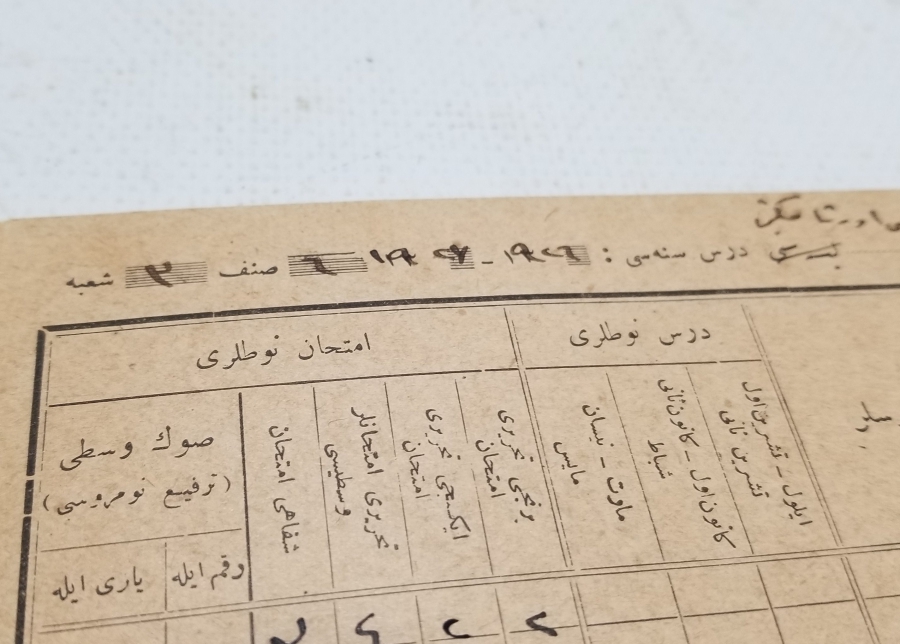 درس سنه‌سی : ١٩٢٦ - ١٩٢٧ صنف ٣ شعبه
درس نوطلری
امتحان نوطلری
ایلول - تشرین اول
تشرین ثانی
كانون اول - كانون ثانی
شباط
مارت - نیسان
مایس
برنجی تحریری
امتحان
ایكنجی تحریری
امتحان
تحریری امتحانلر
وسطیسی
شفاهی امتحان
صوك وسطی
(ترفیع نومروسی)
رقم ایله
یازی ایله